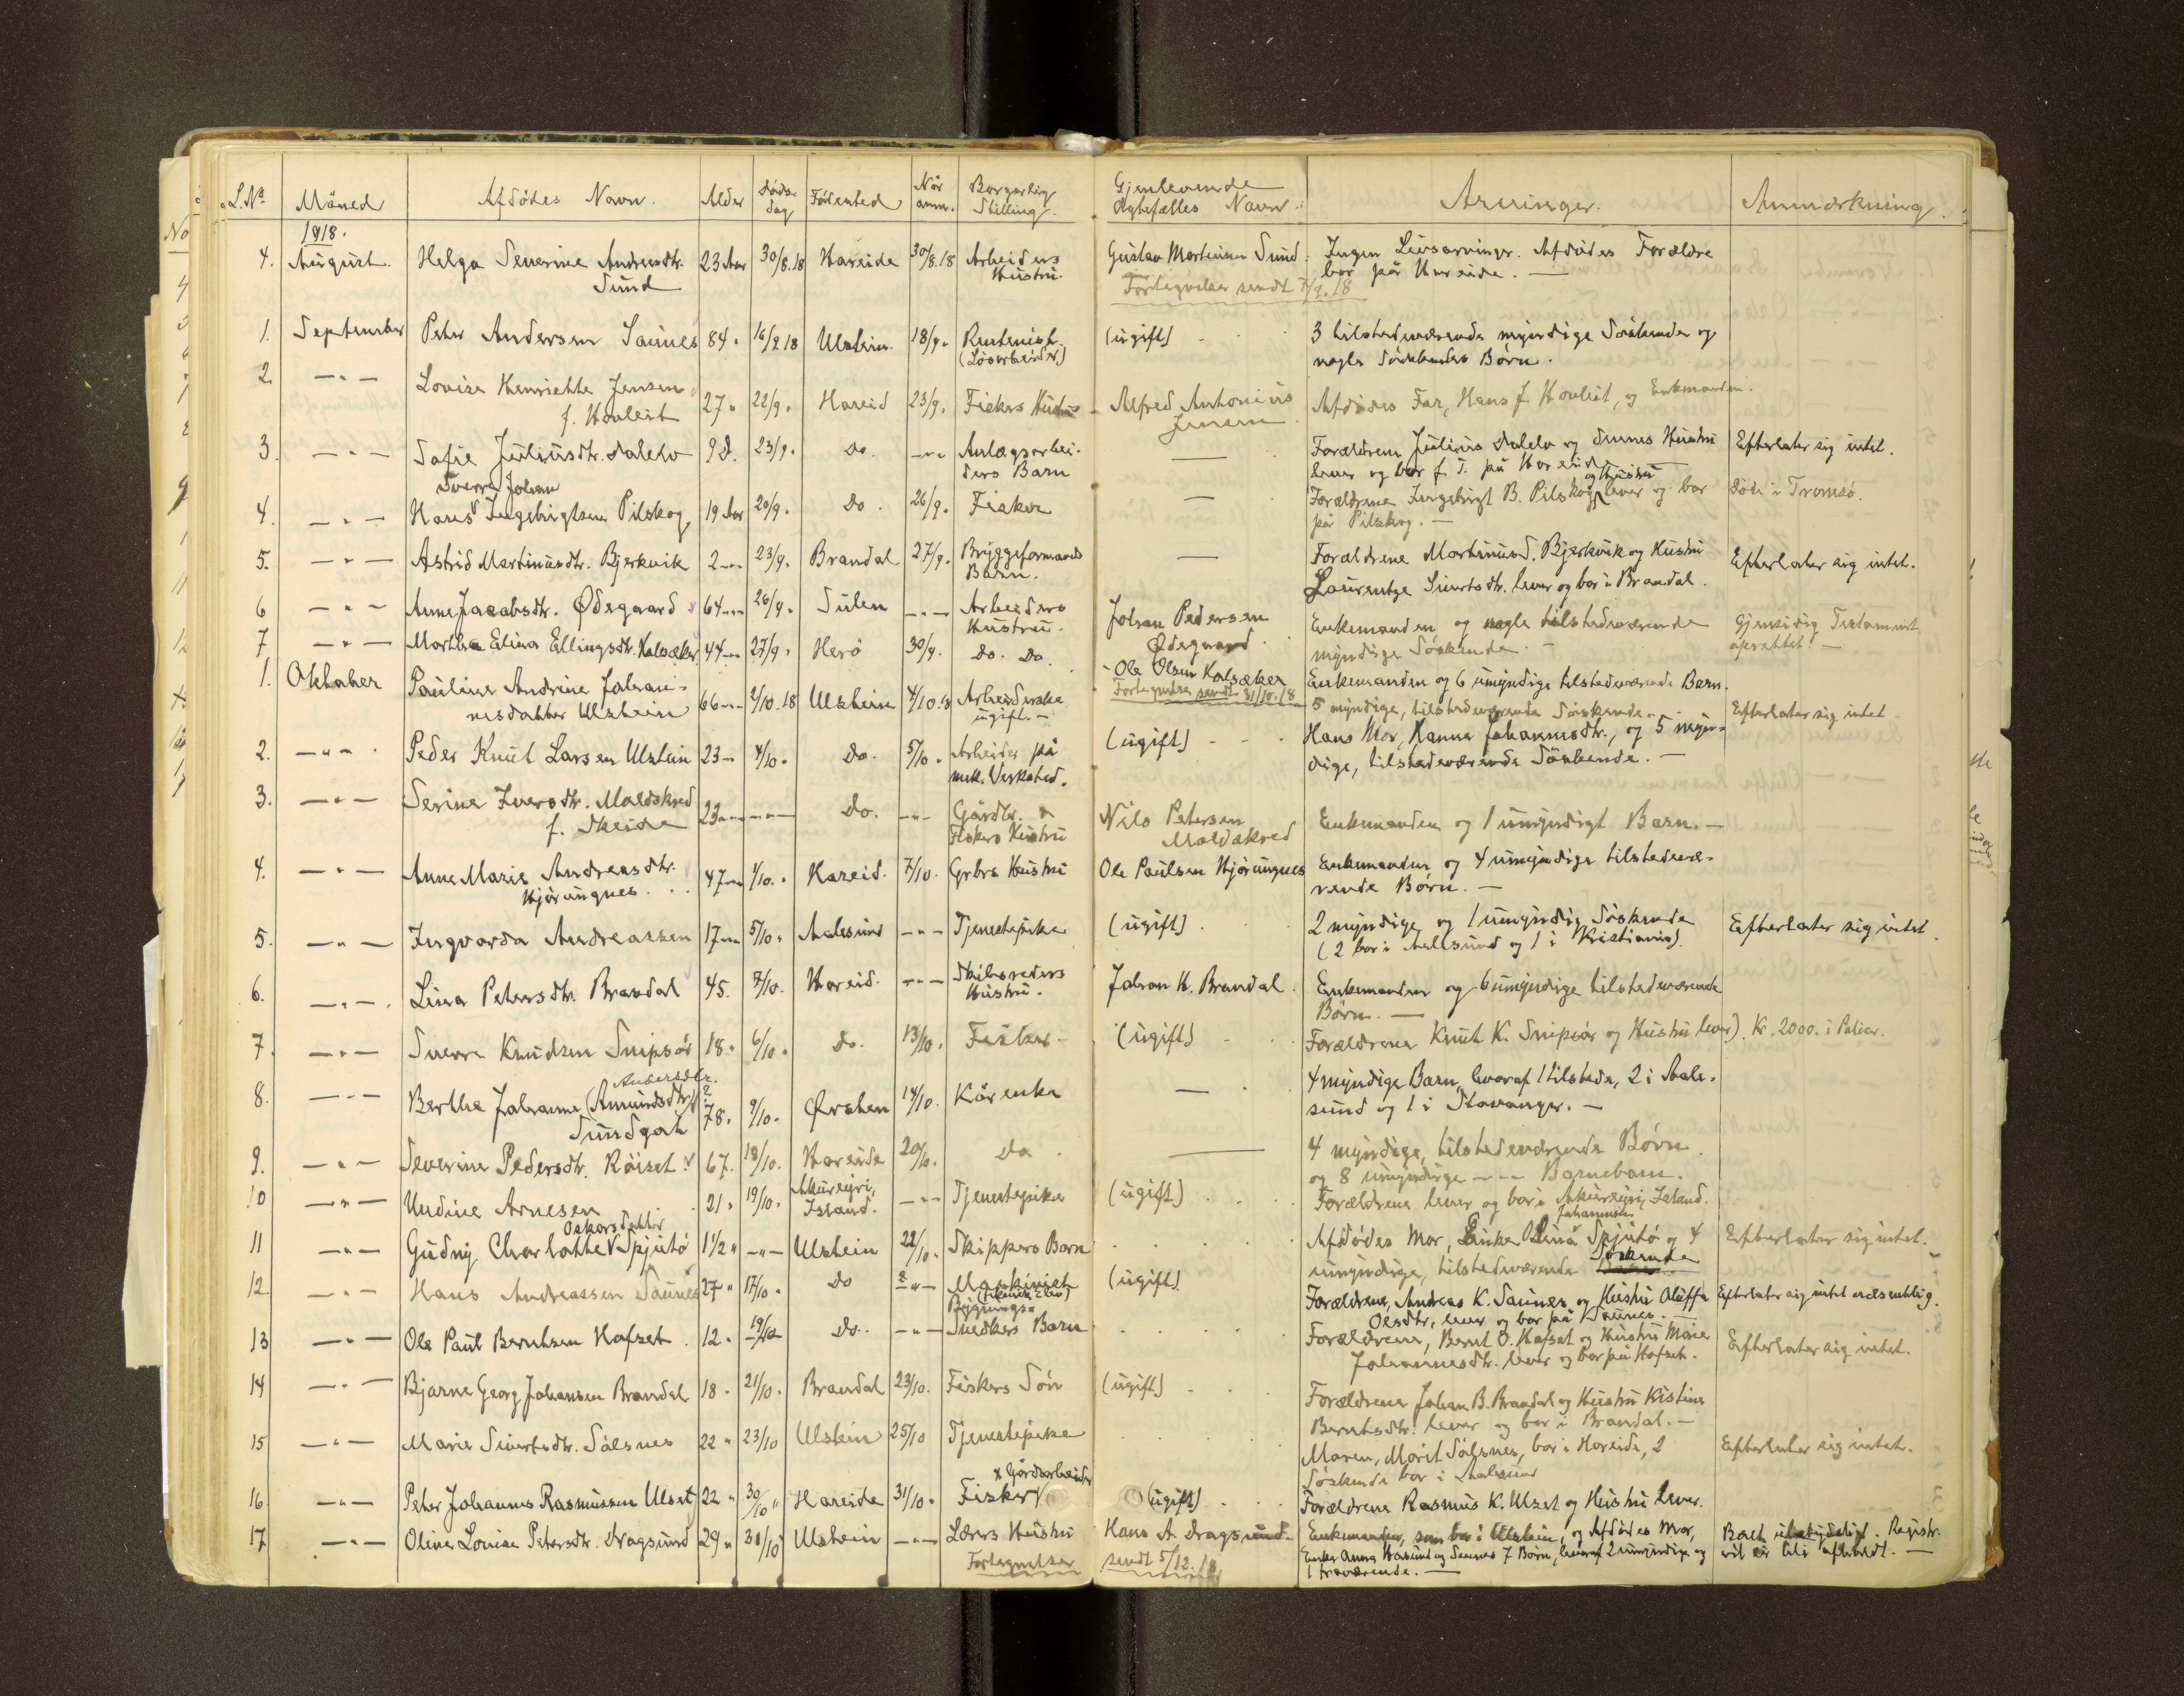 L.No. Måned Afdödes Navn. Alder Döds-dag Födested Når anm. Borgerlig Stilling. Gjenlevende Ægtefælles Navn. Arvinger. Anmærkning.
1918.
4. August. Helga Severine Andreasdtr. Sund 23 Aar 30/8.18 Hareide 30/8.18 Arbeiders Hustru. Gustav Martinsen Sund. Ingen Livsarvinger. Afdödes Forældre
bor på Hareide. —
Fortegnelse sendt 7/9.18
1. September Peter Andersen Saunes 84 " 16/9.18 Ulstein. 18/9 " Rentenist. (Lösarbeider) (ugift) 3 tilstedeværende myndige Söskende og
nogle Söskendes Börn.
2. — " — Lovise Henriette Jensen f. Hovleit 27 " 22/9 " Hareid 23/9 " Fiskers Hustru Alfred Antonius Jensen Afdödes Far, Hans J. Hovleit, og Enkemanden.
3. — " — Sofie Juliusdtr. Dalelv 9 D. 23/9 " Do. — " — Anlægsarbeiders Barn — Forældrene Julius Dalelv og dennes Hustru Efterlater sig intet.
lever og bor f. T. på Hareide
Sverre Johan og Hustru
4. — " — Hans Ingebrigtsen Pilskog 19 Aar 20/9 " Do. 26/9 " Fisker — Forældrene Ingebrigt B. Pilskog lever og bor Död i Tromsö.
på Pilskog. —
5. — " — Astrid Martinusdtr. Bjerkvik 2 — " — 23/9 " Brandal 27/9 " Bryggeformands Barn. — Forældrene Martinus D. Bjerkvik og Hustru Efterlater sig intet.
Laurentze Sivertsdtr. lever og bor i Brandal.
6 — " — Anne Jacobsdtr. Ødegaard 64 — " — 26/9 " Sulen — " — Arbeiders Hustru. Johan Pedersen Ødegaard Enkemanden og nogle tilstedeværende Gjensidig Testament
myndige Söskende. — oprettet. —
7 — " — Marthe Elina Ellingsdtr. Kalsæker 44 — " — 27/9 " Herö 30/9. Do. Do. Ole Olsen Kalsæker Enkemanden og 6 umyndige tilstedeværende Barn.
Fortegnelse sendt 31/10.18
1. Oktober Pauline Andrine Johannesdatter Ulstein 66 — " — 2/10.18 Ulstein 4/10.18 Arbeiderske ugift. — 5 myndige, tilstedeværende Söskende. Efterlater sig intet.
2. — " — Peder Knut Larsen Ulstein 23 — " 4/10 " Do. 5/10 " Arbeider på mek. Verksted. (ugift) Hans Mor, Hanna Johannesdtr., og 5 myn-
dige, tilstedeværende Söskende. —
3. — " — Serine Iversdtr. Maldskred f. Skeide 23 — " — — " — Do. — " — Gårdbr. & Fiskers Hustru Nils Petersen Maldskred Enkemanden og 1 umyndigt Barn. —
4. — " — Anne Marie Andreasdtr. Hjörungnes 47 — " — 1/10 " Hareid. 7/10. Grbrs Hustru Ole Paulsen Hjörungnes Enkemanden og 4 umyndige tilstedevæ-
rende Börn. —
5. — " — Ingvarda Andreassen 17 — " — 5/10 " Aalesund — " — Tjenestepike (ugift) 2 myndige og 1 umyndig Söskende Efterlater sig intet.
(2 bor i Aalesund og 1 i Kristiania).
6. — " — Lina Petersdtr. Brandal 45. 7/10. Hareid. — " — Skibsreders Hustru. Johan H. Brandal. Enkemanden og 6 umyndige tilstedeværende
Börn. —
7. — " — Sverre Knudsen Snipsör 18 " 6/10 " Do. 13/10 " Fisker (ugift) Forældrene Knut K. Snipsör og Hustru lever). Kr. 2000. i Policer.
Andersdtr.
8. — " — Berthe Johanne (Amundsdtr)? Sundgot 78 " 9/10 " Ørsten 14/10. Kårenke — 4 myndige Barn, hvoraf 1 tilstede, 2 i Aale-
sund og 1 i Stavanger. —
9. — " — Severine Pedersdtr. Röiset 67. 18/10. Hareide 20/10. Do. — 4 myndige, tilstedeværende Börn.
og 8 umyndige — " — Barnebarn.
10 — " — Undine Arnesen 21 " 19/10 " Akureyri, Island. — " — Tjenestepike (ugift) Forældrene lever og bor i Akureyri, Island.
Oskarsdatter Johannesdtr.
11 — " — Gudny Charlotte Spjutö 1 1/2 " — " — Ulstein 22/10 " Skippers Barn Afdödes Mor, Enke Lina Spjutö og 4 Efterlater sig intet.
umyndige, tilstedeværende Söskende
12. — " — Hans Andreassen Saunes 27 " 17/10 " Do — " — Maskinist (ugift) Forældrene, Andreas K. Saunes og Hustru Oluffa Efterlater sig intet væsentlig.
Olsdtr., lever og bor på Saunes. —
13 — " — Ole Paul Berntsen Hafset 12 " 19/10 Do. — " — Bygnings-Snedkers Barn Forældrene, Bernt O. Hafset og Hustru Marie Efterlater sig intet.
Johannesdtr. lever og bor på Hafset.
14 — " — Bjarne Georg Johansen Brandal 18 " 21/10 " Brandal 23/10. Fiskers Sön (ugift) Forældrene Johan B. Brandal og Hustru Kistine
Berntsdtr. lever og bor i Brandal. —
15 — " — Marie Sivertsdtr. Sölsnes 22 " 23/10 Ulstein 25/10 Tjenestepike Moren, Marit Sölsnes, bor i Hareide, 2 Efterlater sig intet.
Söskende bor i Aalesund
16. — " — Peter Johannes Rasmussen Ulset 22 " 30/10 " Hareide 31/10 " Fisker & Gårdsarbeider (ugift) Forældrene Rasmus K. Ulset og Hustru lever.
17. — " — Oline Lovise Petersdtr. Dragsund 29 " 30/10 Ulstein — " — Lærers Hustru Hans A. Dragsund. Enkemanden, som bor i Ulstein, og Afdödes Mor, Boet ubetydeligt. Registr.
Enke Anna Hasund og dennes 7 Börn, hvoraf 2 umyndige og vil ei bli afholdt. —
1 fraværende. —
Fortegnelse sendt 5/12.18